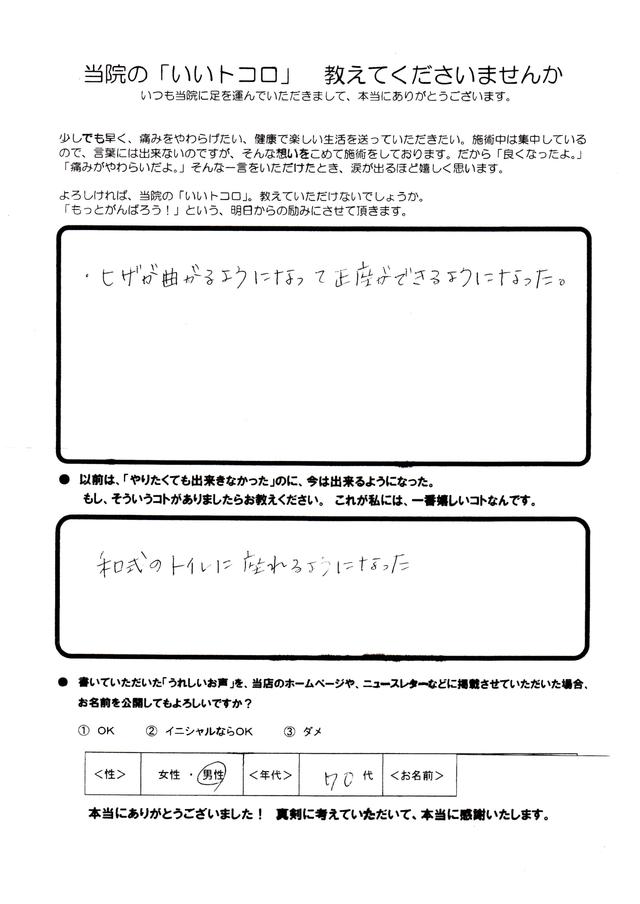 当院の「いいトコロ」　教えてくださいませんか
いつも当院に足を運んでいただきまして、本当にありがとうございます。
少しでも早く、痛みをやわらげたい、健康で楽しい生活を送っていただきたい。施術中は集中している
ので、言葉には出来ないのですが、そんな想いをこめて施術をしております。だから「良くなったよ。」
「痛みがやわらいだよ。」そんな一言をいただけたとき、涙が出るほど嬉しく思います。
よろしければ、当院の「いいトコロ」。教えていただけないでしょうか。
「もっとがんばろう！」という、明日からの励みにさせて頂きます。
・ヒザが曲がるようになって正座ができるようになった。
● 以前は、「やりたくても出来きなかった」のに、今は出来るようになった。
もし、そういうコトがありましたらお教えください。 これが私には、一番嬉しいコトなんです。
和式のトイレに座れるようになった
● 書いていただいた「うれしいお声」を、当店のホームページや、ニュースレターなどに掲載させていただいた場合、
お名前を公開してもよろしいですか？
① OK　② イニシャルならOK　③ ダメ
＜性＞ 女性 ・ 男性 ＜年代＞ 70 代 ＜お名前＞
本当にありがとうございました！ 真剣に考えていただいて、本当に感謝いたします。